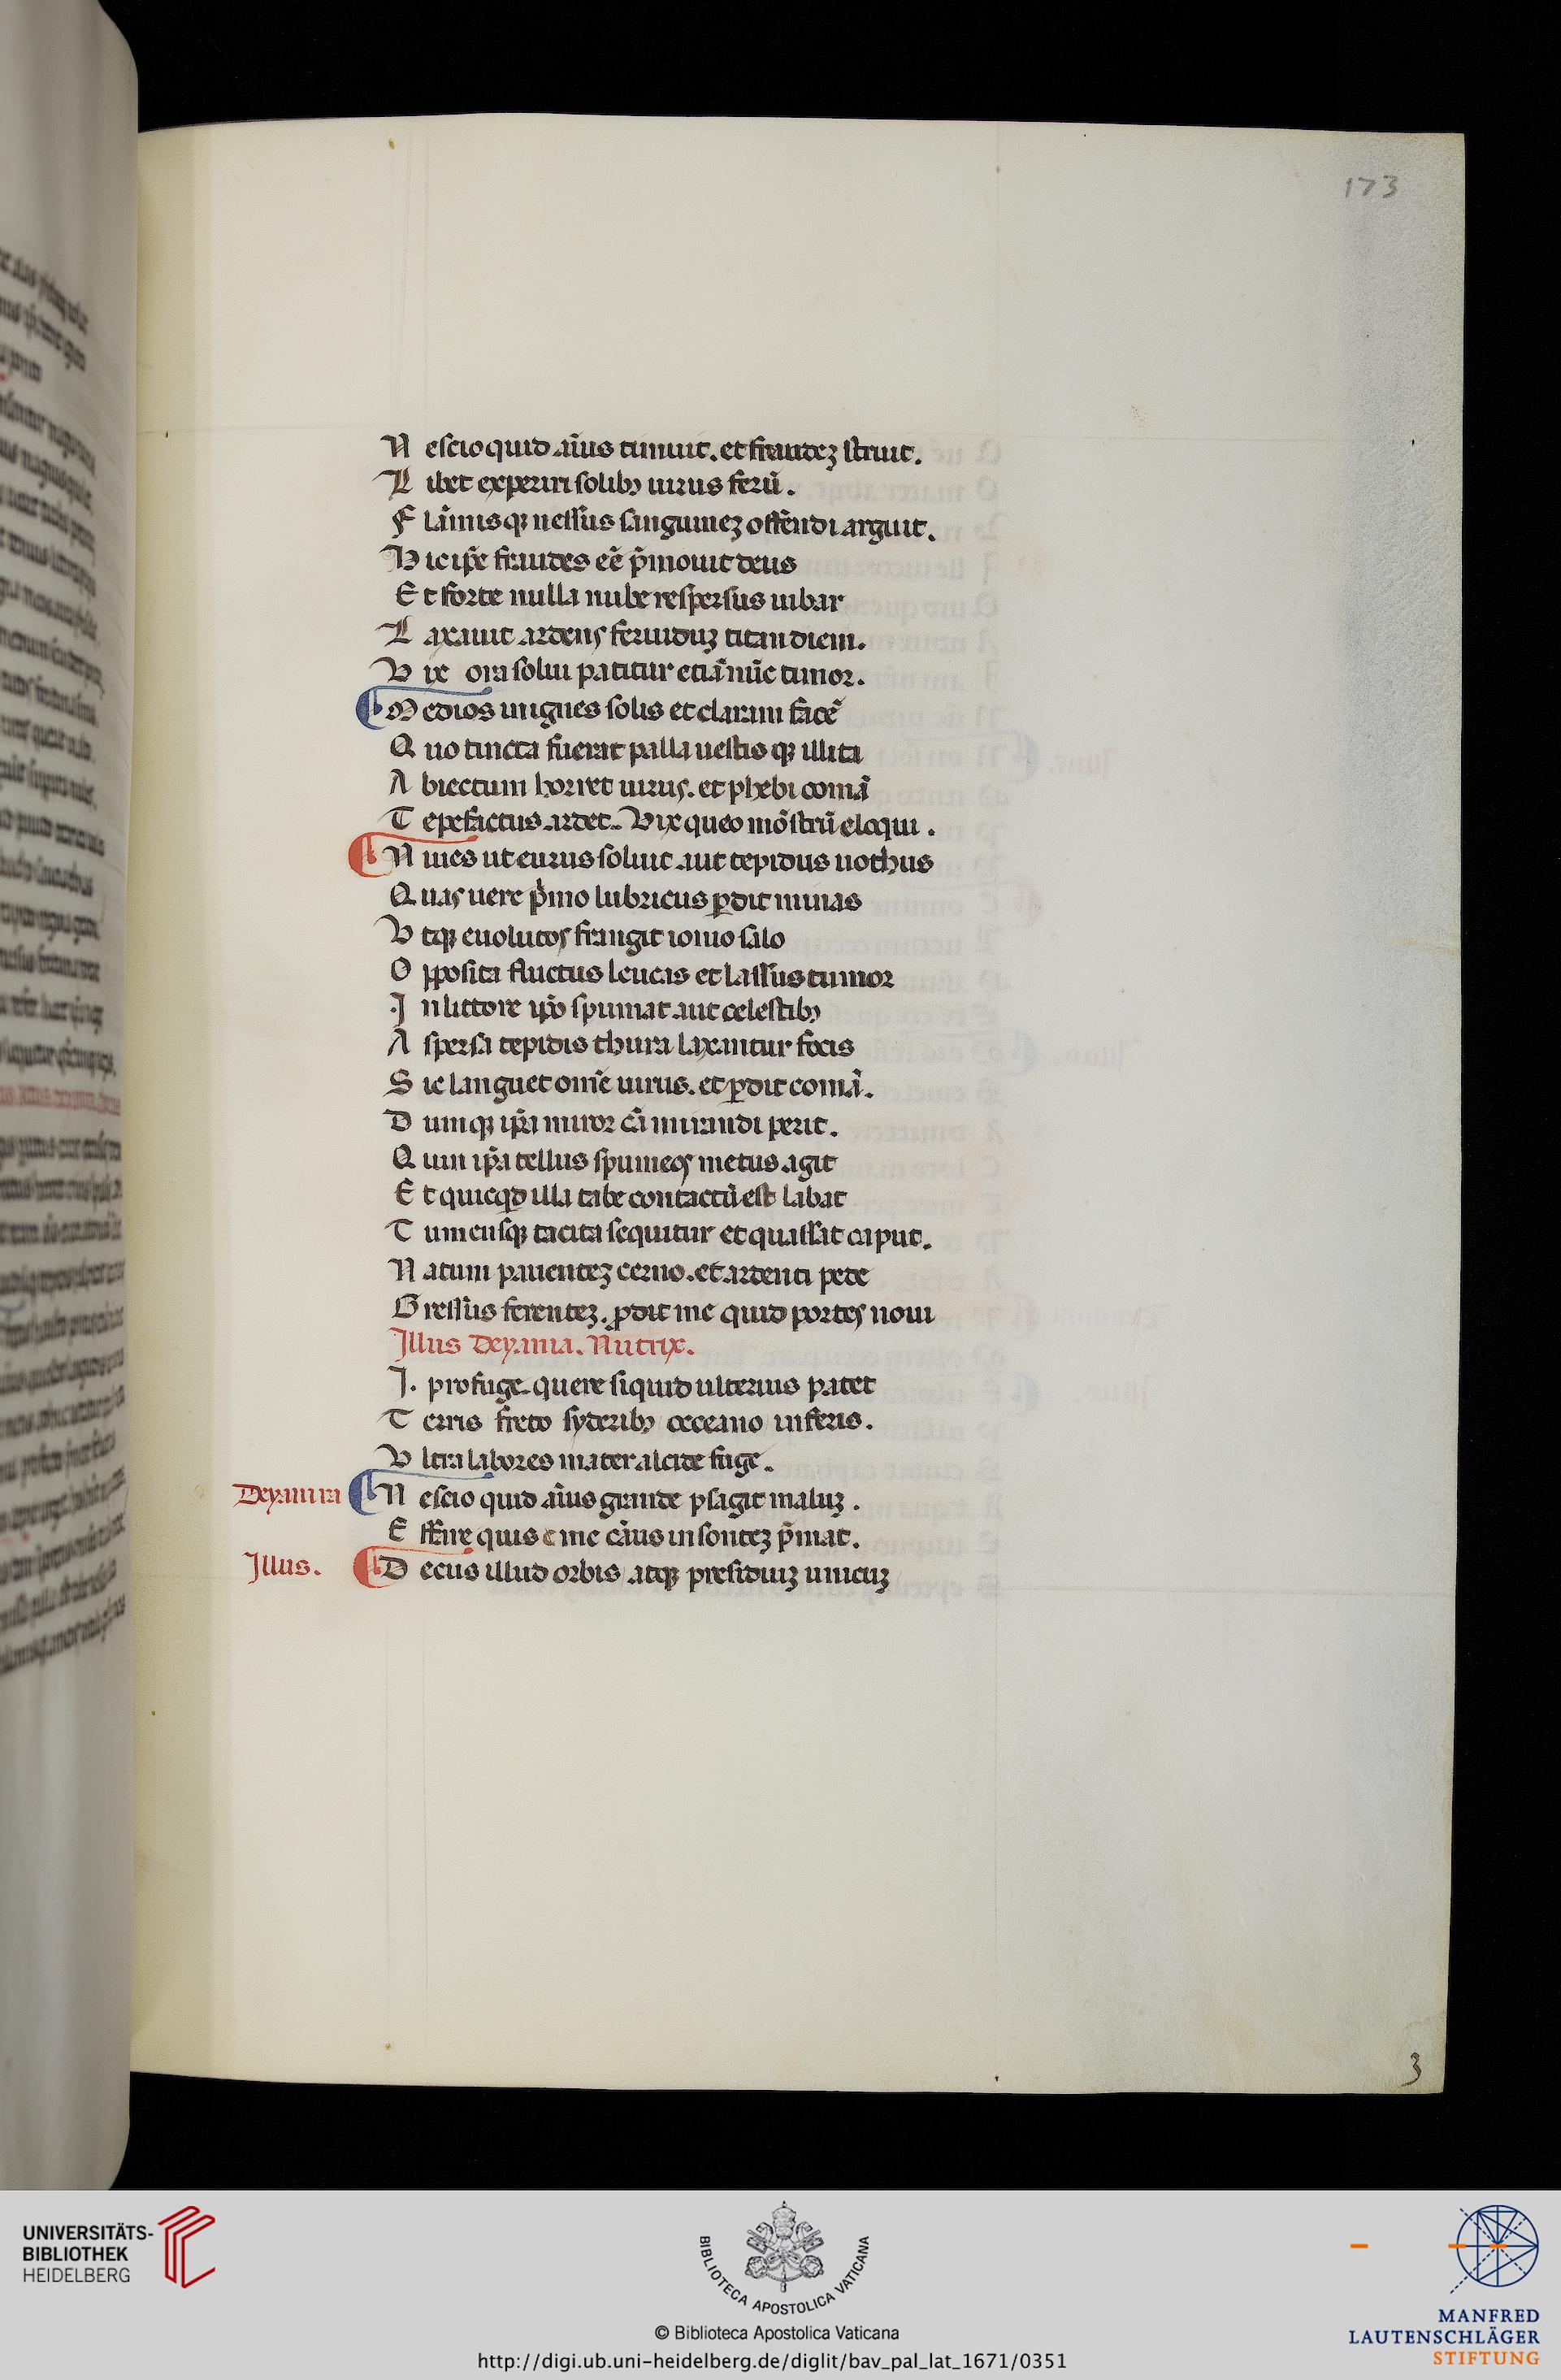 173
N escio quid aĩus tumuit. et fraudeʒ struit.
L ibet experiri solibꝫ uirus ferũ.
F lãmisqꝫ nessus sanguineʒ ostẽdi arguit.
H ic ip̃e fraudes eẽ p̃mouit deus
E t forte nulla nube respersus iubar
L axauit ardens feruiduʒ titan diem.
V ix ora solui patitur etiã nũc timor.
M edios in ignes solis et claram facẽ
Q uo tincta fuerat palla uestisqꝫ illita
A biectum horret uirus. et phebi comã
T epefactus ardet. Vix queo mõstrũ eloqui.
N iues ut eurus soluit aut tepidus nothus
Q uas uere p̃mo lubricus ꝑdit mimas
V tqꝫ euolutos frangit ionio salo
O pposita fluctus leucas et lassus tumor
I n littore ip̃o spumat aut celestibꝫ
A spersa tepidis thura laxantur focis
S ic languet om̃e uirus. et ꝑdit comã.
D umqꝫ ip̃a miror cã mirandi perit.
Q uin ip̃a tellus spumeos metus agit
E t quicqͥd illa tabe contactũ est labat
T umensqꝫ tacita sequitur et quassat caput.
N atum pauenteʒ cerno. et ardenti pede
G ressus ferenteʒ. ꝓdit me quid portes noui
Illus Deyania. Nutrix.
I. profuge. quere siquid ulterius patet
T erris freto syderibꝫ occeano inferis.
V ltra labores mater alcide fuge.
Deyanira N escio quid aĩus grande p̃sagit maluʒ.
E
Illus. D ecus illud orbis atqꝫ presidiuʒ unicuʒ
3
UNIVERSITÄTS-
BIBLIOTHEK
HEIDELBERG
BIBLIOTECA APOSTOLICA VATICANA
© Biblioteca Apostolica Vaticana
http://digi.ub.uni-heidelberg.de/diglit/bav_pal_lat_1671/0351
MANFRED
LAUTENSCHLÄGER
STIFTUNG